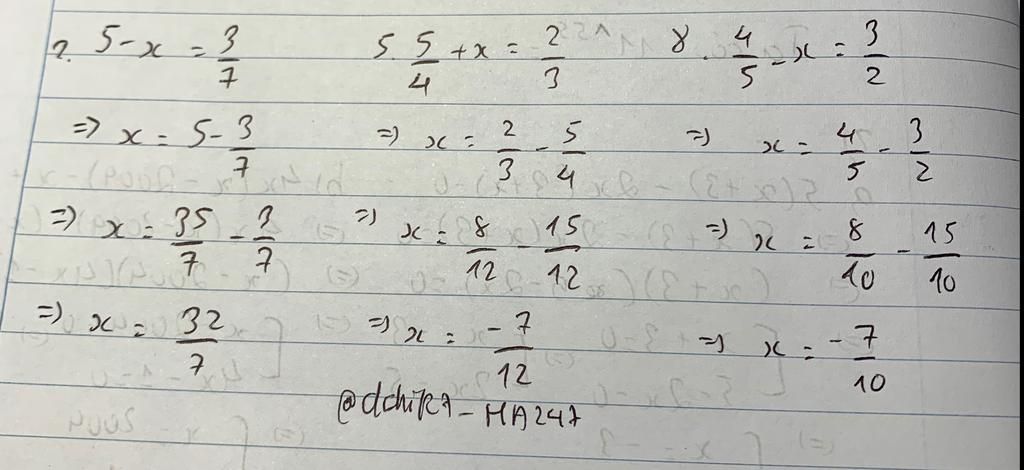 2. 5-x = 3/7
=> x = 5 - 3/7
=> x = 35/7 - 3/7
=> x = 32/7
5. 5/4 + x = 2/3
=> x = 2/3 - 5/4
=> x = 8/12 - 15/12
=> x = -7/12
8. 4/5 - x = 3/2
=> x = 4/5 - 3/2
=> x = 8/10 - 15/10
=> x = -7/10